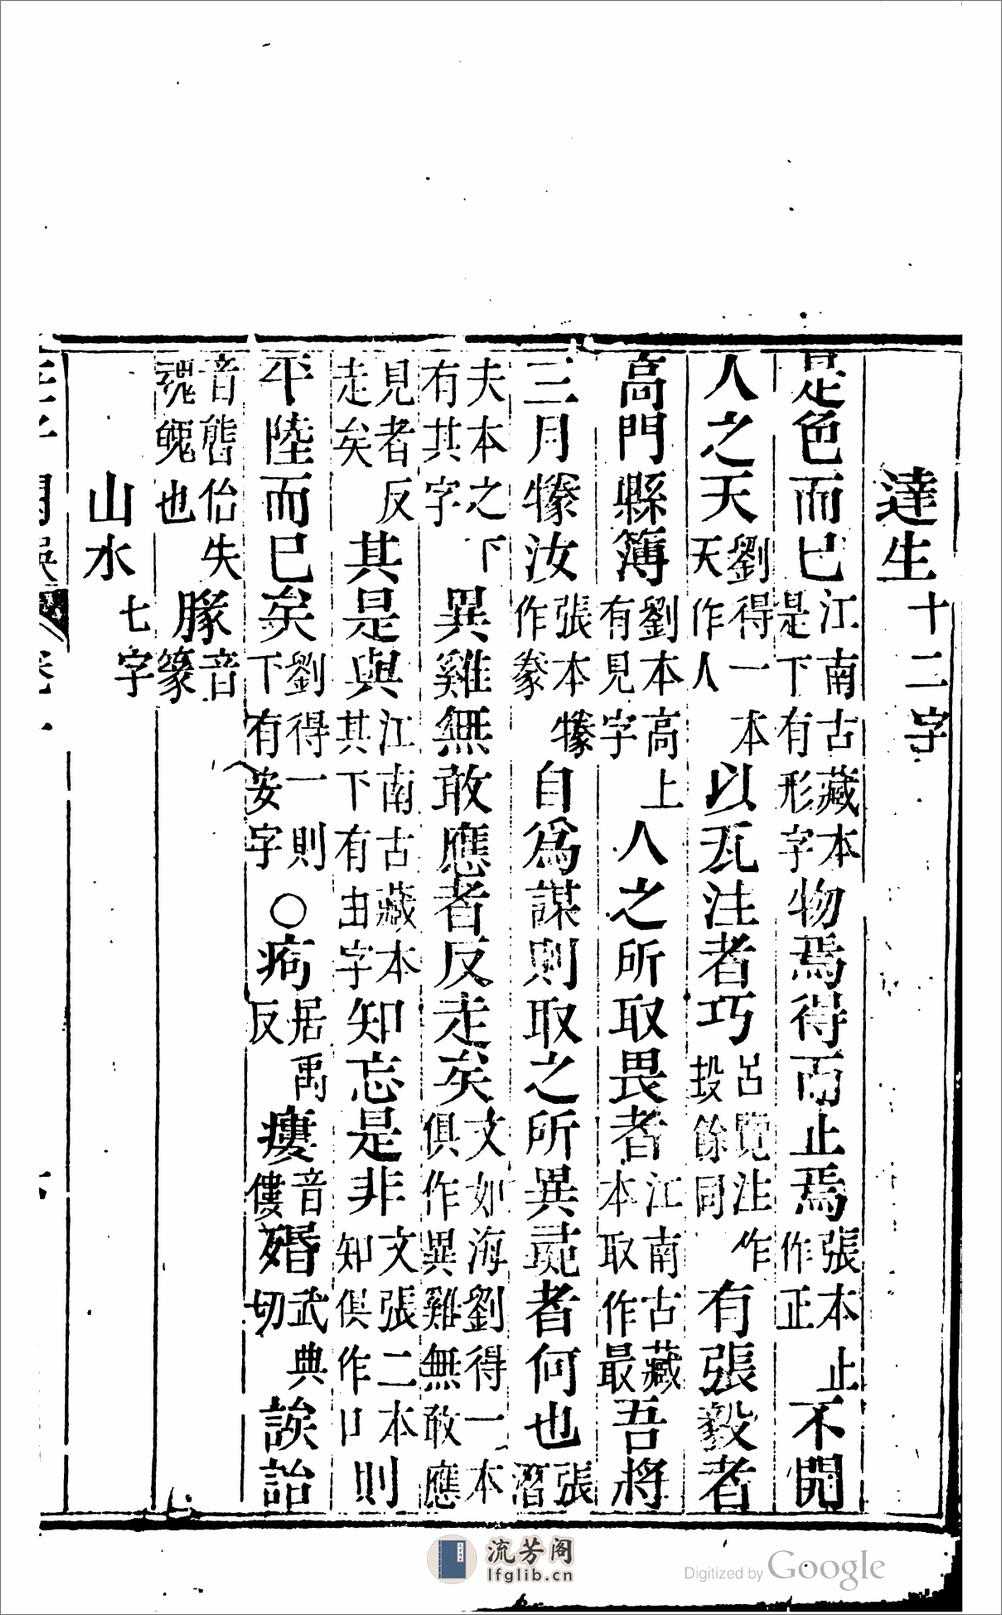 達生十二字
是色而已江南古藏本是下有形字物焉得而止焉張本止作正不開
人之天劉得一本天作人以瓦注者巧呂覽注作投餘同有張毅者
高門縣簿劉本高上有見字人之所取畏者江南古藏本取作最吾將
三月㹖汝張本㹖作豢自為謀則取之所異彘者何也張
夫本之下有其字異雞無敢應者反走矣文如海劉得一本俱作異雞無敢應
見者反走矣其是與江南古藏本其下有由字知忘是非文張二本知俱作口則
平陸而已矣劉得一則下有安字○痀居禹反瘻音僂殙武典切誒詒
音態佁失魂魄也腞音篆
山水七字